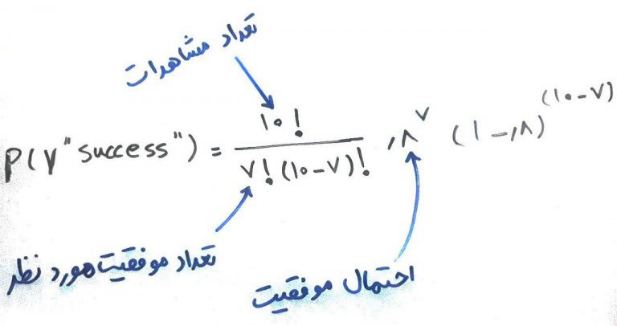 تعداد مشاهدات
P(۷ "success") = ۱۰! / ۷! (۱۰-۷)! ,۸^۷ (۱-,۸)^(۱۰-۷)
تعداد موفقیت مورد نظر
احتمال موفقیت